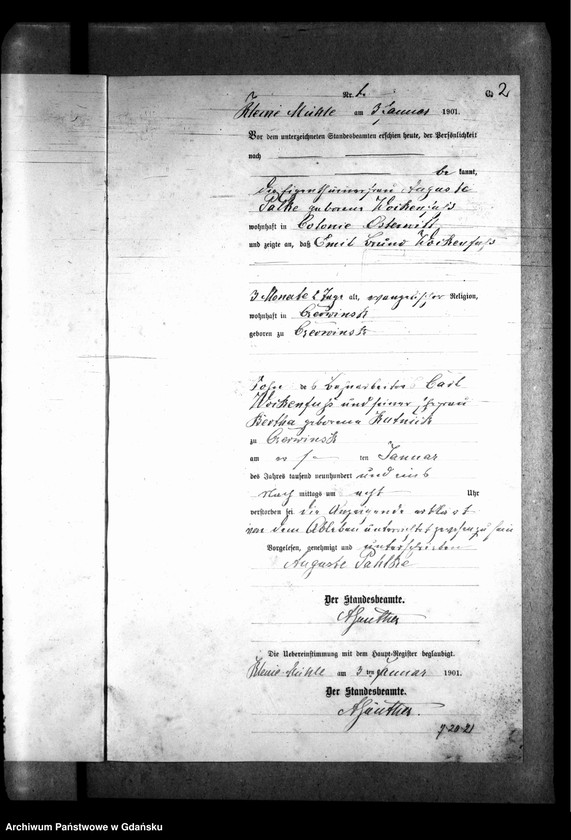 Nr. 2
C. 2
Kleine Mühle am 3 Januar 1901.
Vor dem unterzeichneten Standesbeamten erschien heute, der Persönlichkeit
nach
be kannt,
die Eigenthümerfrau Auguste
geborene Wockenfuß
wohnhaft in Colonie Osterwitt
und zeigte an, daß Emil Bruno Wockenfuß
3 Monate 2 Tage alt, evangelischer Religion,
wohnhaft in Czerwinsk
geboren zu Czerwinsk
Sohn des Bahnarbeiters Carl
Wockenfuß und seiner Ehefrau
Bertha geborene
zu Czerwinsk
am ten Januar
des Jahres tausend neunhundert und eins
Nach mittags um acht Uhr
verstorben sei. Die Anzeigende erklärt
von dem Ableben unterrichtet gewesen zu sein
Vorgelesen, genehmigt und unterschrieben
Auguste Pahlke
Der Standesbeamte.
AGünther
Die Uebereinstimmung mit dem Haupt-Register beglaubigt.
Kleine Mühle am 3 ten Januar 1901.
Der Standesbeamte.
AGünther.
Archiwum Państwowe w Gdańsku